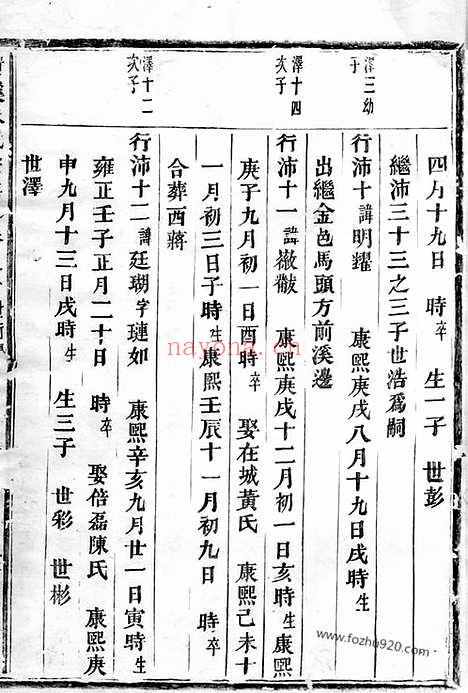 澤三幼子
澤十四次子
澤十二次子
四月十九日 時卒 生一子 世彭
繼沛三十三之三子世浩爲嗣
行沛十諱明耀 康熙庚戌八月十九日戌時生
出繼金邑馬頭方前溪邊
行沛十一諱徽猷 康熙庚戌十二月初一日亥時生康熙
庚子九月初一日酉時卒 娶在城黃氏 康熙己未十
一月初三日子時生康熙壬辰十一月初九日 時卒
合葬西蔣
行沛十二諱廷瑚字璉如 康熙辛亥九月廿一日寅時生
雍正壬子正月二十日 時卒 娶倍磊陳氏 康熙庚
申九月十三日戌時生 生三子 世彩 世彬
世澤
nayona.cn
www.fozhu920.com